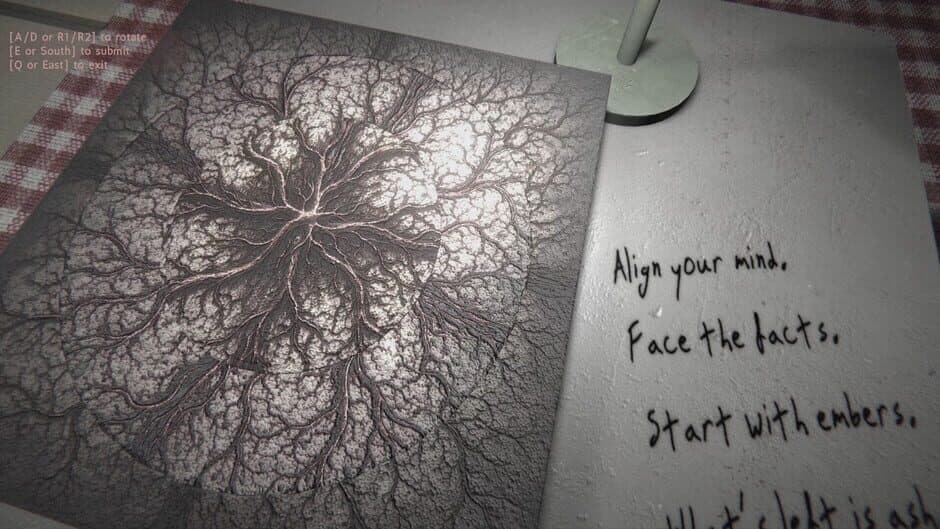 [A/D or R1/R2] to rotate
[E or South] to submit
[Q or East] to exit
Align your mind.
Face the facts.
Start with embers.
What's left is ash